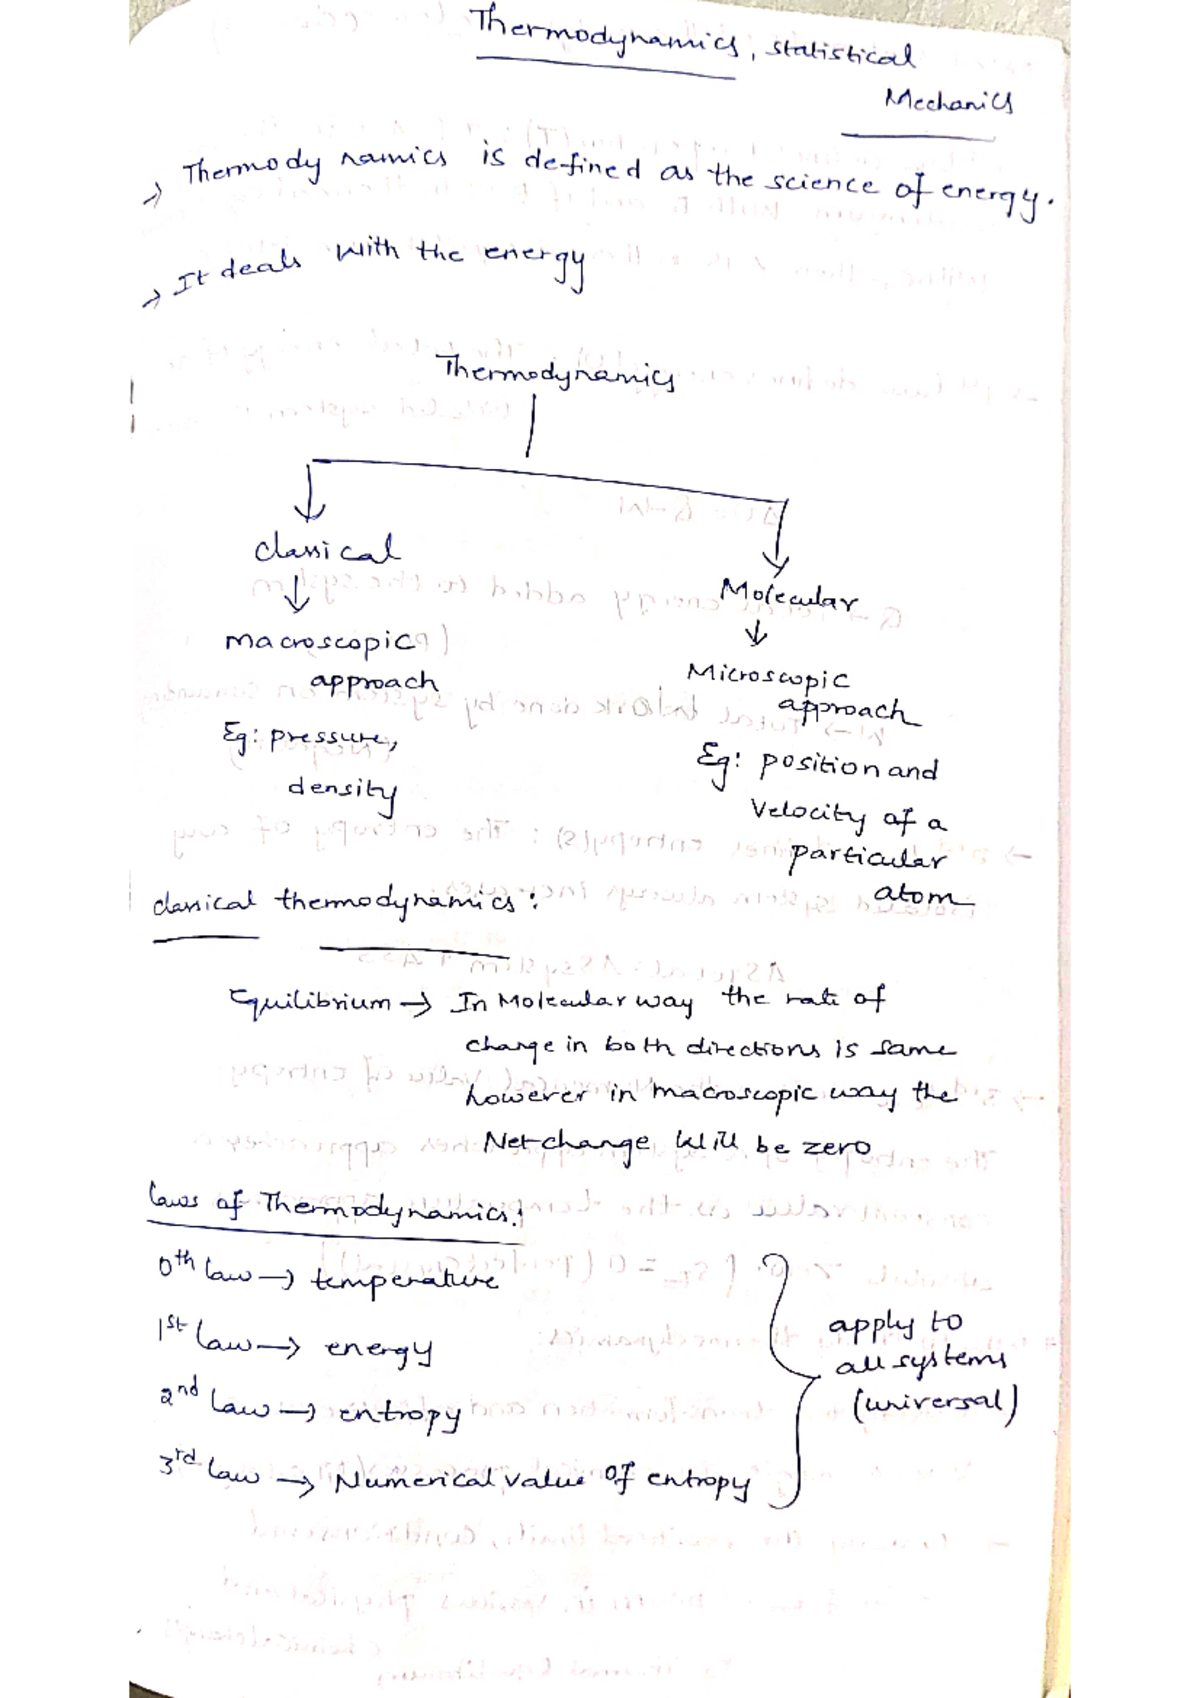 Thermodynamics, statistical
Mechanics
→ Thermodynamics is defined as the science of energy.
→ It deals with the energy
Thermodynamics
classical
Molecular
↓
↓
macroscopic
approach
Microscopic
approach
Eg: pressure,
density
Eg: position and
velocity of a
particular
atom
classical thermodynamics:
Equilibrium → In Molecular way the rate of
change in both directions is same
however in macroscopic way the
Net change will be zero
laws of Thermodynamics:
0th law → temperature
1st law → energy
2nd law → entropy
3rd law → Numerical value of entropy
apply to
all systems
(universal)